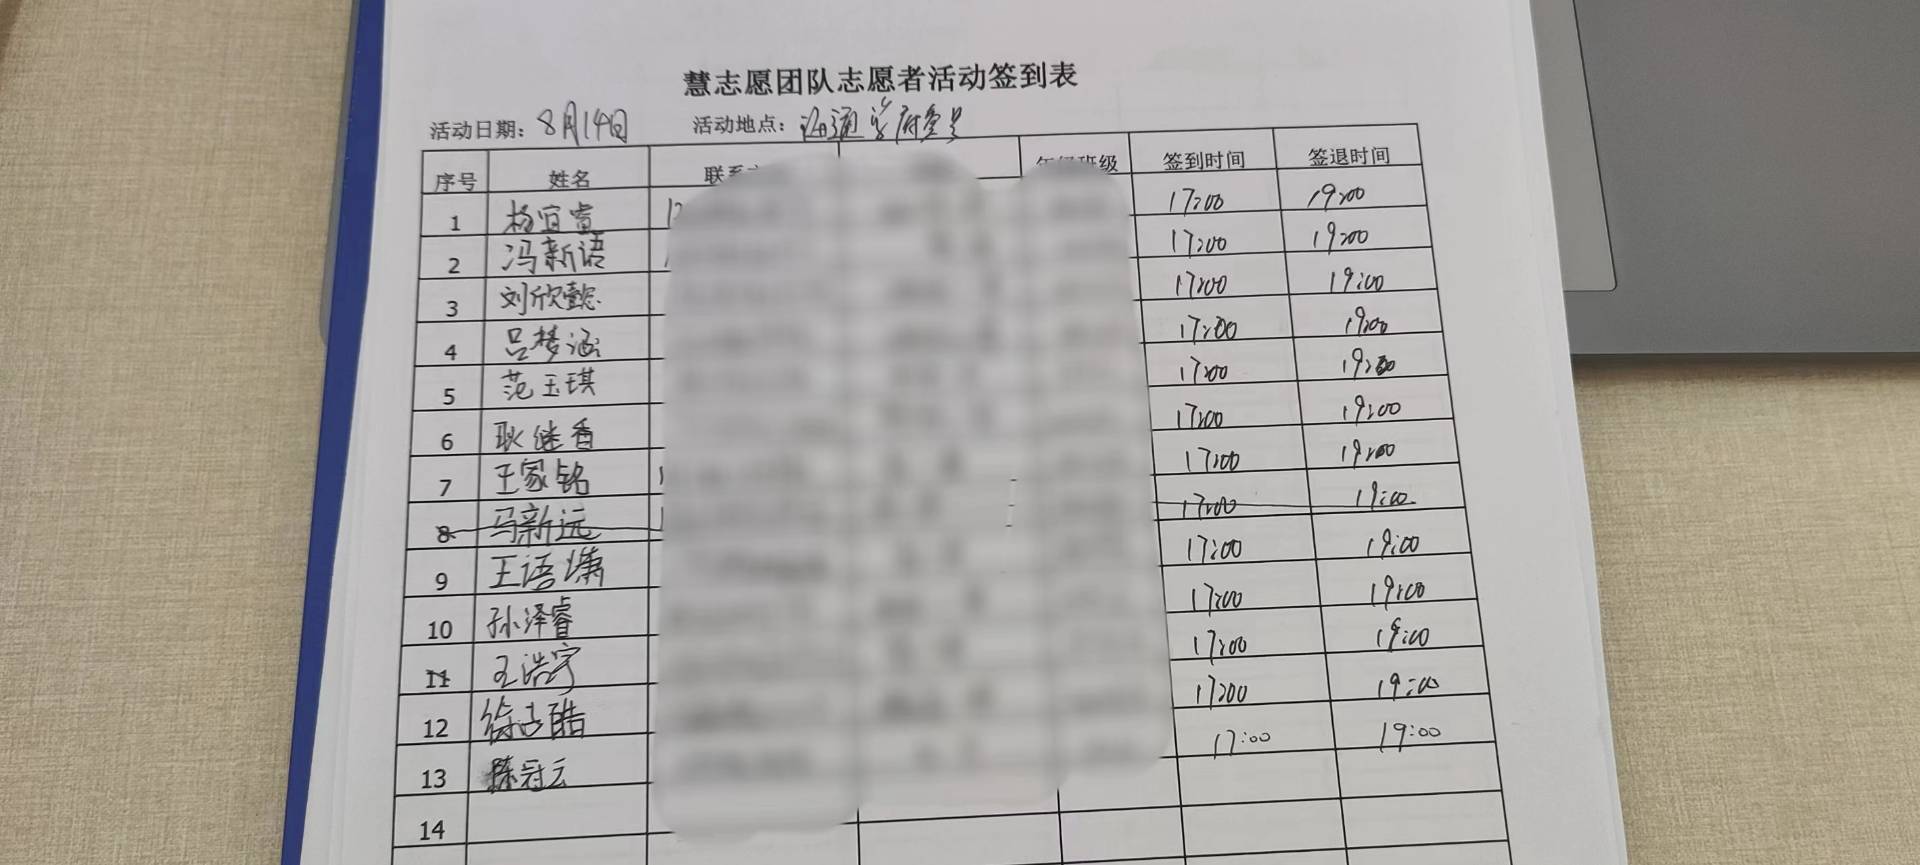 慧志愿团队志愿者活动签到表
活动日期：8月14日 活动地点：海通学府壹号
序号 姓名 联系 年级班级 签到时间 签退时间
1 杨宜睿 17:00 19:00
2 冯新语 17:00 19:00
3 刘欣懿 17:00 19:00
4 吕梦涵 17:00 19:00
5 范玉琪 17:00 19:00
6 耿继香 17:00 19:00
7 王家铭 17:00 19:00
8 马新远 17:00 19:00
9 王语潇 17:00 19:00
10 孙泽睿 17:00 19:00
11 王浩宇 17:00 19:00
12 徐酷 17:00 19:00
13 陈冠云 17:00 19:00
14